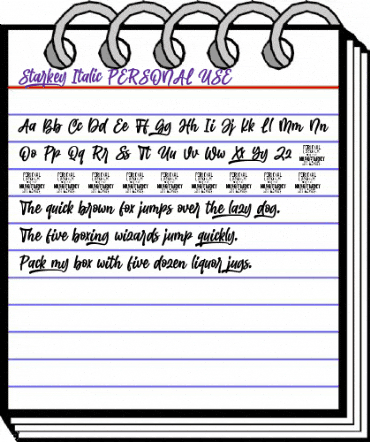 Starkey Italic PERSONAL USE
Aa Bb Cc Dd Ee Ff Gg Hh Ii Jj Kk Ll Mm Nn
Oo Pp Qq Rr Ss Tt Uu Vv Ww Xx Yy Zz
The quick brown fox jumps over the lazy dog.
The five boxing wizards jump quickly.
Pack my box with five dozen liquor jugs.